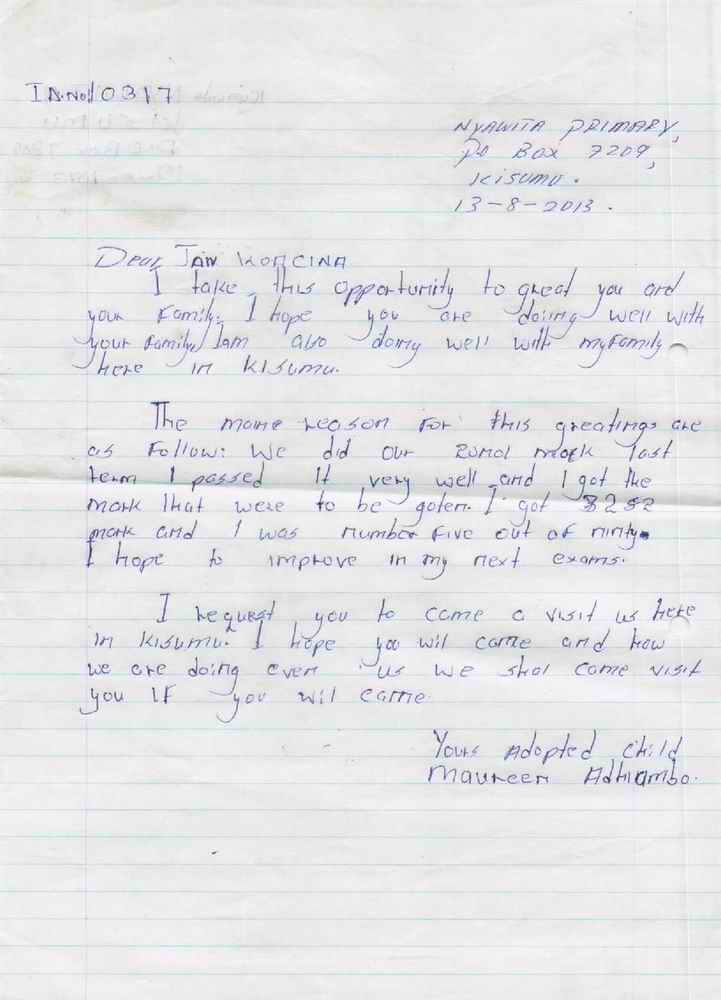 ID.No:/0317
NYAWITA PRIMARY,
PO BOX 7209,
KISUMU.
13-8-2013.
Dear JAN KONCINA
I take this opportunity to great you and
your family. I hope you are doing well with
your family, Iam also doing well with myfamily
here in KISUMU.
The maine reason for this greatings are
as follow: We did our zonal mock last
term I passed it very well and I got the
mark that were to be goten. I got 3252
mark and I was number five out of ninty.
I hope to improve in my next exams.
I request you to came a visit us here
in KISUMU. I hope you wil came and how
we are doing even us we shal came visit
you IF you wil came.
Yours Adopted child
Maureen Adhiambo.